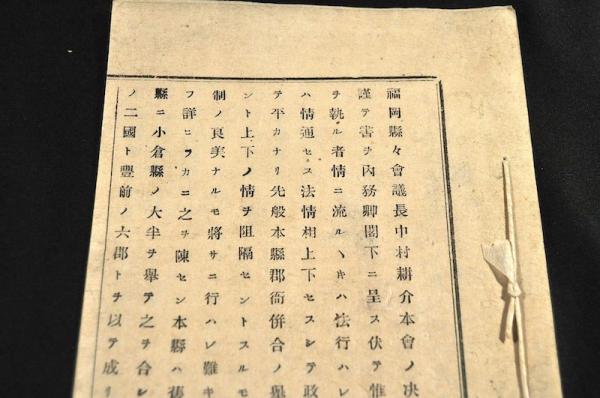 福岡縣々會議長中村耕介本會ノ决
謹テ書ヲ內務卿閣下ニ呈ス伏テ惟
ヲ執ル者情ニ流ルヽキハ法行ハレ
ハ情通セス法情相上下セスシテ政
テ平カナリ先般本縣郡衙併合ノ擧
ント上下ノ情ヲ阻隔セントスルモ
制ノ良美ナルモ將サニ行ハレ難キ
フ詳ヒラカニ之ヲ陳セン本縣ハ舊
縣ニ小倉縣ノ大半ヲ擧テ之ヲ合レ
ノ二國ト豊前ノ六郡トヲ以テ成リ